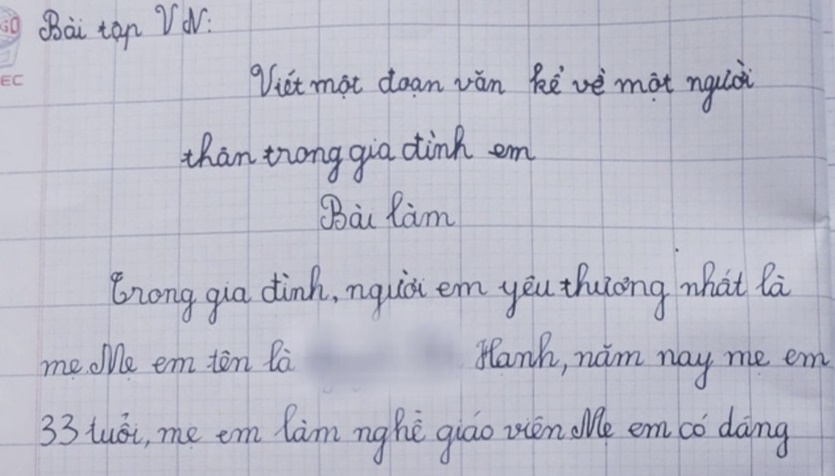 GO
EC
Bài tập VN:
Viết một đoạn văn kể về một người
thân trong gia đình em
Bài làm
Trong gia đình, người em yêu thương nhất là
mẹ. Mẹ em tên là Hanh, năm nay mẹ em
33 tuổi, mẹ em làm nghề giáo viên Mẹ em có dáng